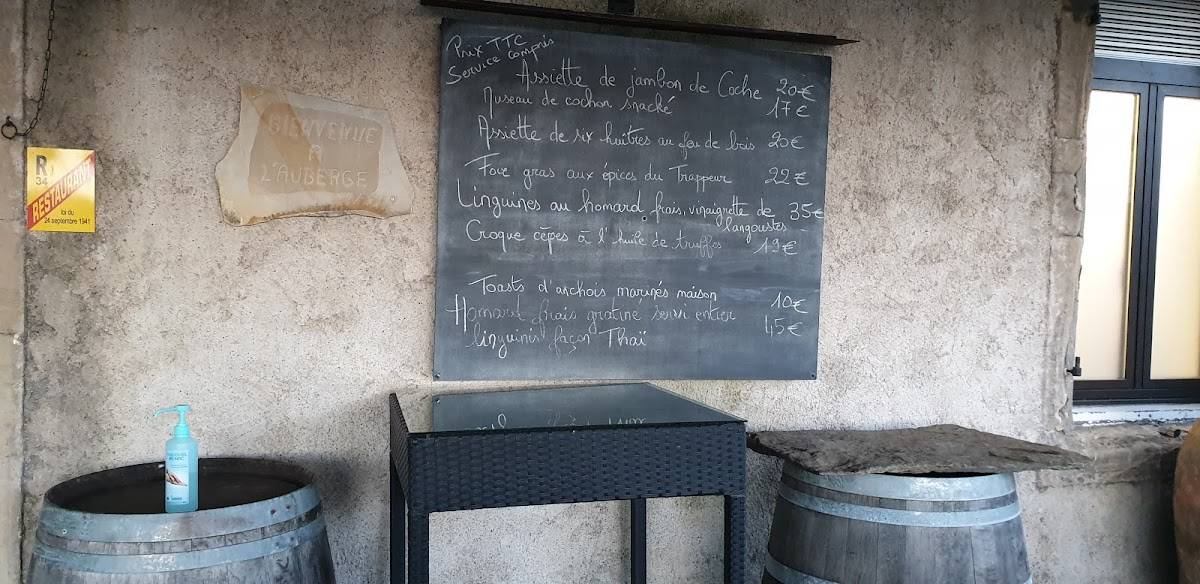 R
34
RESTAURANT
loi du
24 septembre 1941
BIENVENUE
A
L'AUBERGE
Prix TTC
Service compris
Assiette de jambon de Coche 20€
Museau de cochon snacké 17€
Assiette de six huîtres au feu de bois 20€
Foie gras aux épices du Trappeur 22€
Linguines au homard frais, vinaigrette de 35€
langoustes
Croque cèpes à l'huile de truffes 19€
Toasts d'anchois marinés maison 10€
Homard frais gratiné servi entier 45€
linguinis façon Thaï